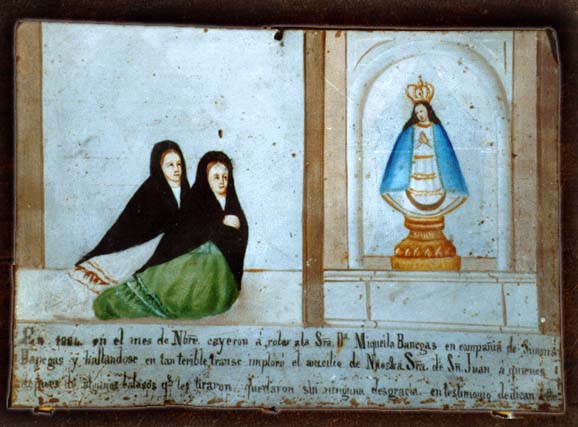 En 1884 en el mes de Nbre. cayeron á robar ala Sra. Da. Miqueila Banegas en compañia de Simona
Banegas y hallandose en tan terible transe imploro el aucilio de Ntra. Sra. de Sn. Juan, a quienes
despues de algunos balasos qe. les tiraron. quedaron sin ninguna desgracia. en testimonio dedican